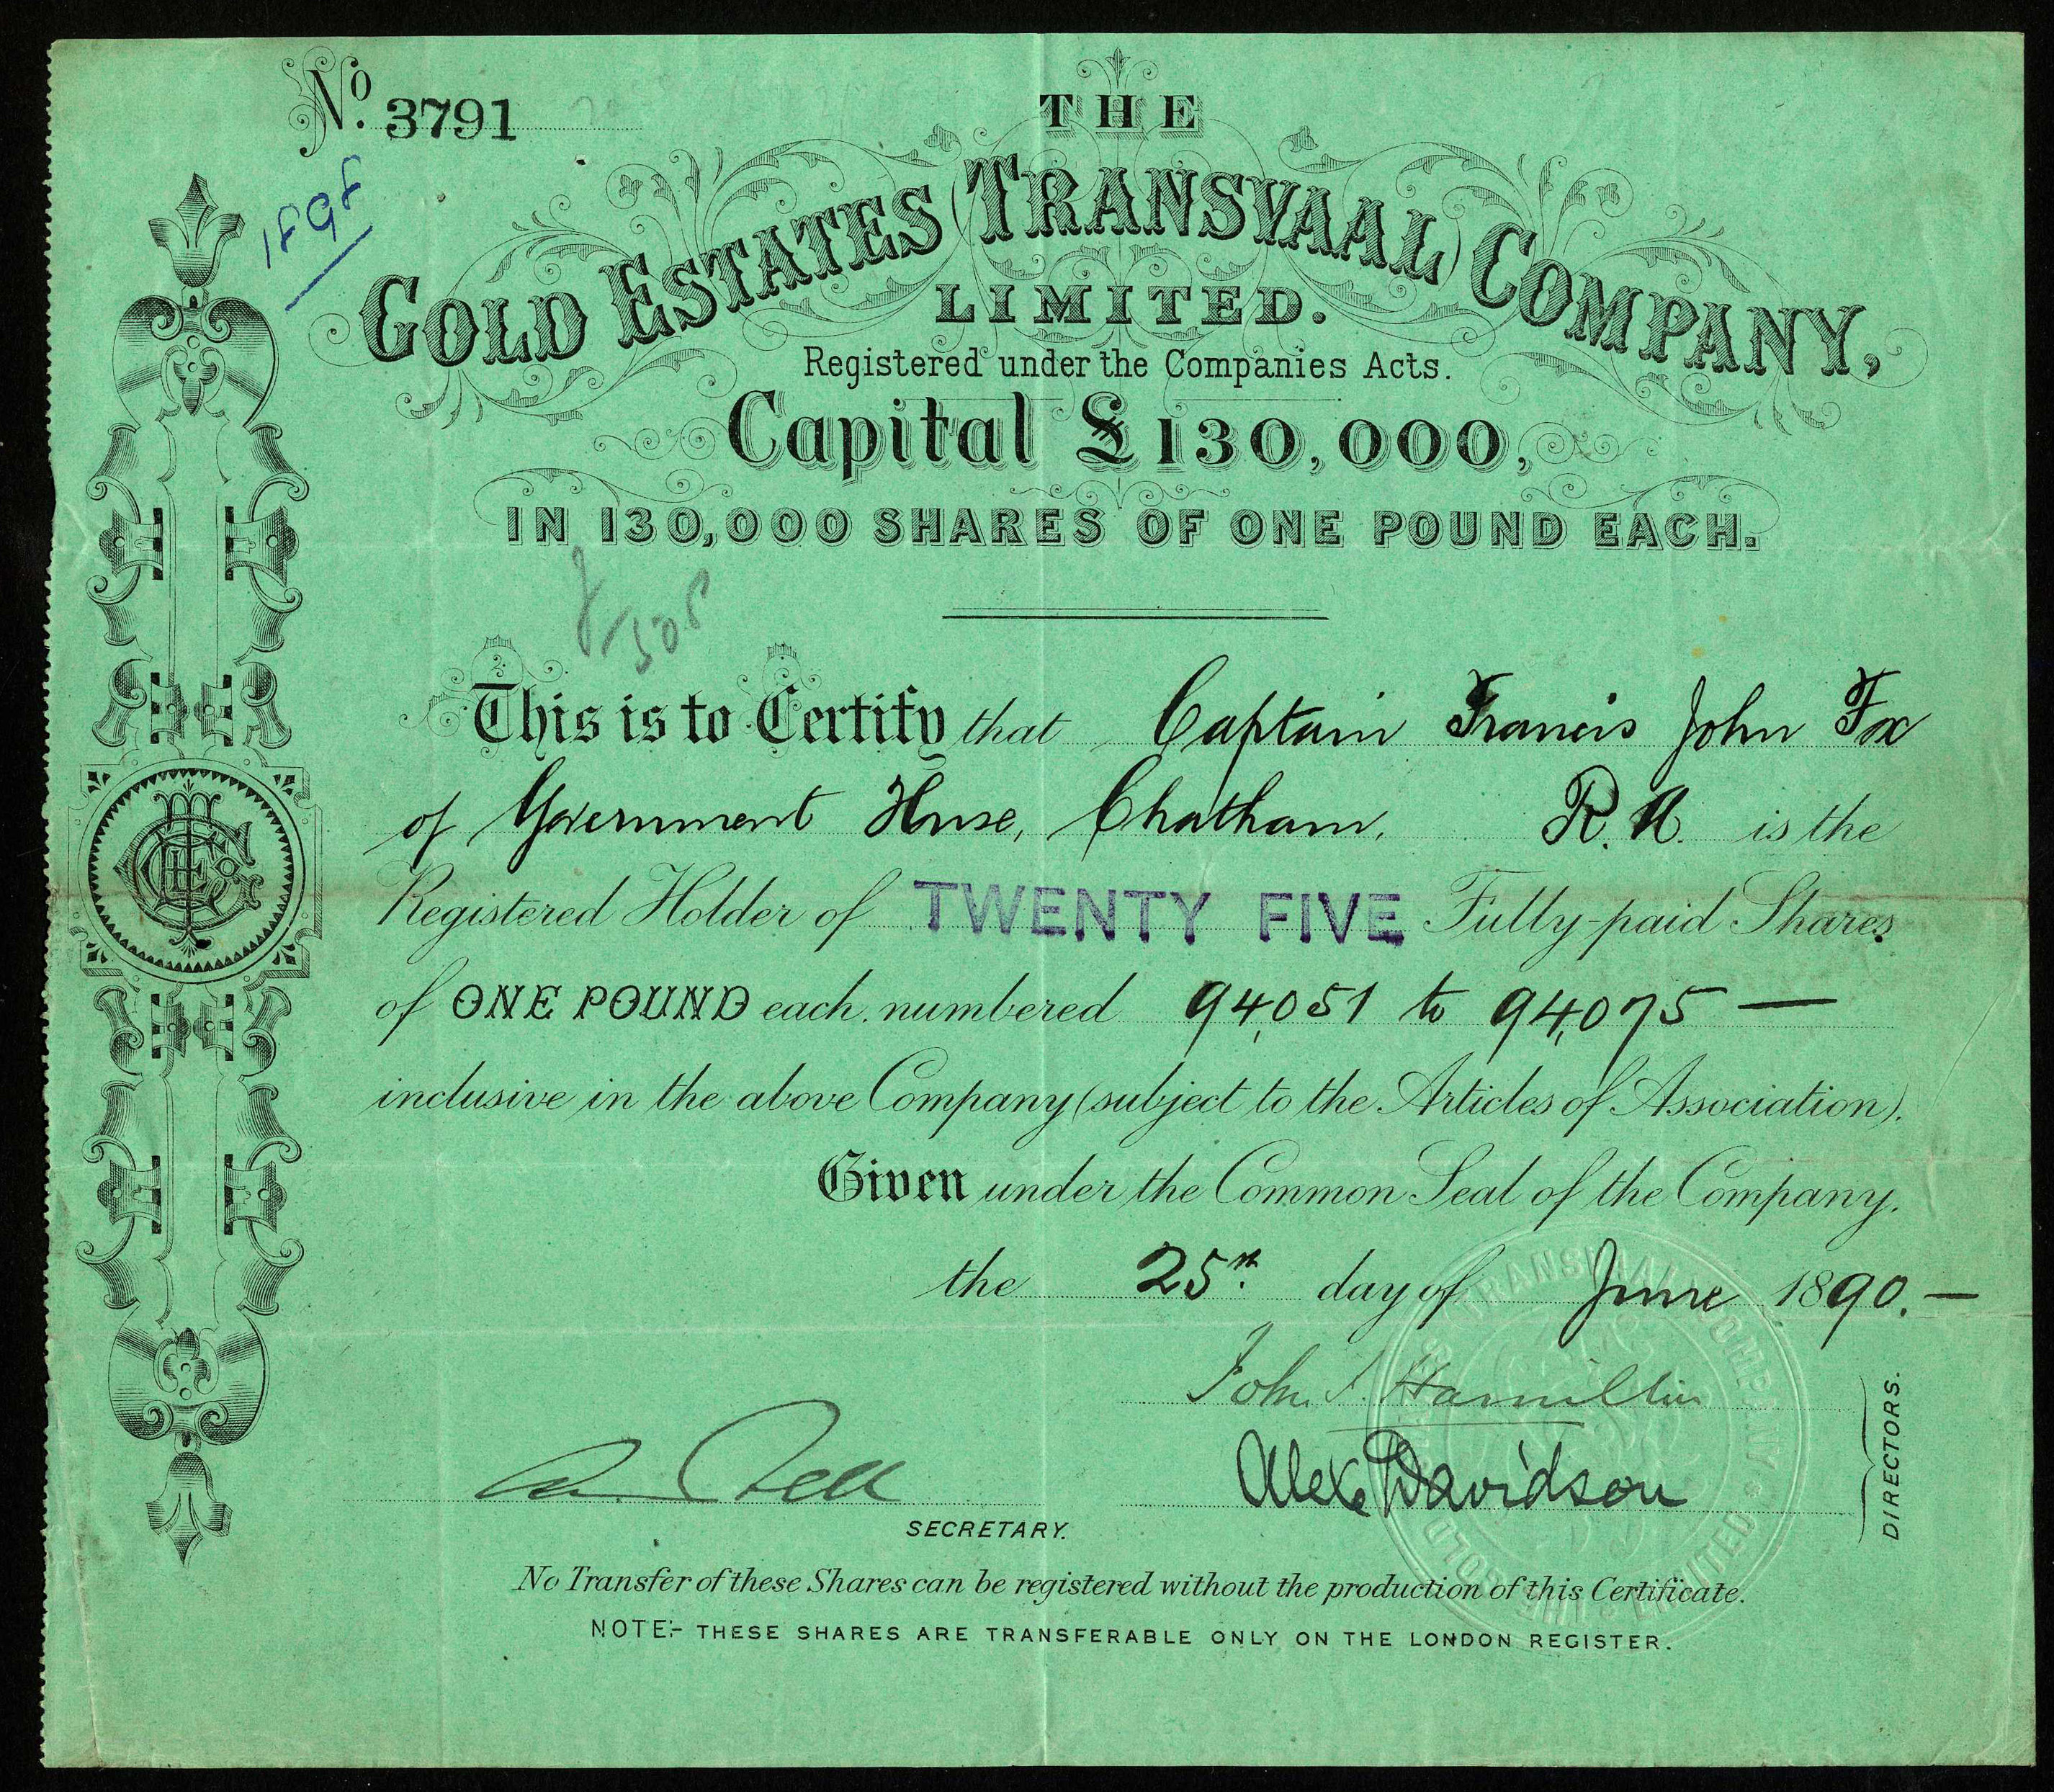 No. 3791
THE
GOLD ESTATES (TRANSVAAL) COMPANY,
LIMITED.
Registered under the Companies Acts.
Capital £130,000,
IN 130,000 SHARES OF ONE POUND EACH.
This is to Certify that Captain Francis John Fox
of Government House, Chatham. R.A. is the
Registered Holder of TWENTY FIVE Fully-paid Shares
of ONE POUND each numbered 94,051 to 94,075 —
inclusive in the above Company (subject to the Articles of Association).
Given under the Common Seal of the Company.
the 25th day of June 1890. —
John Hamilton
Alex Davidson
DIRECTORS.
SECRETARY.
No Transfer of these Shares can be registered without the production of this Certificate.
NOTE:- THESE SHARES ARE TRANSFERABLE ONLY ON THE LONDON REGISTER.
THE GOLD ESTATES (TRANSVAAL) COMPANY LIMITED